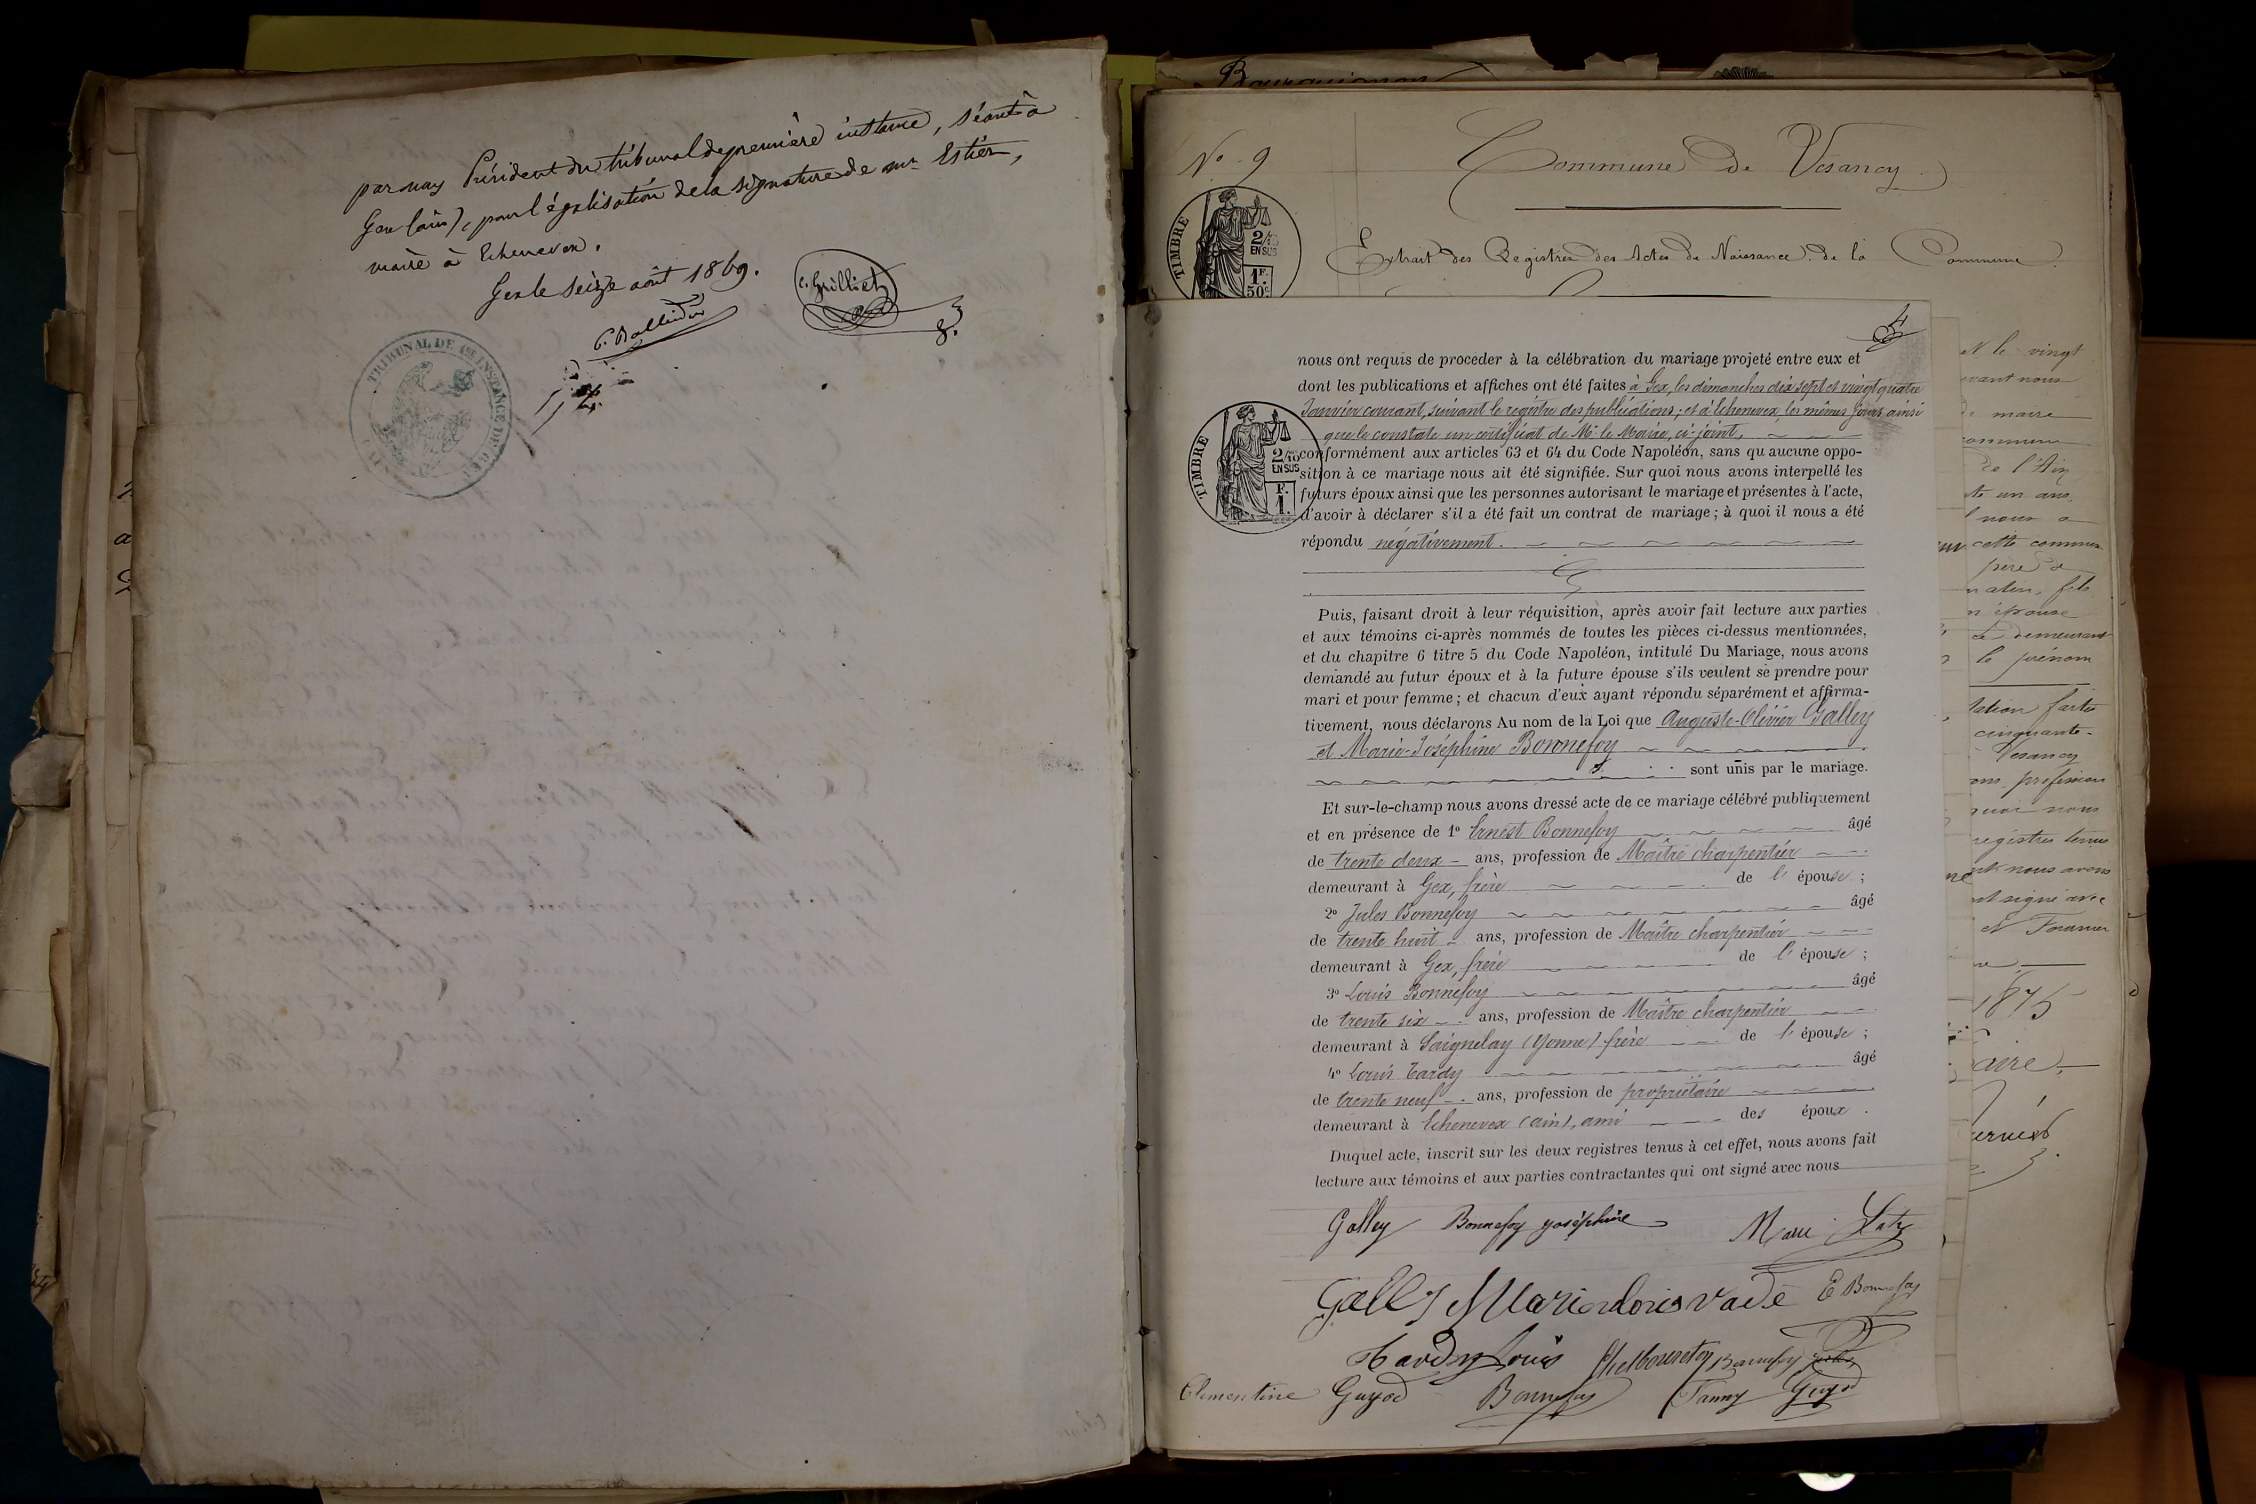 par nous Président du tribunal de première instance, séant à
Gex (ain), pour légalisation de la signature de mr Estier,
maire à Echenevex.
Gex le seize août 1869.
TRIBUNAL DE 1ERE INSTANCE DE GEX
Commune de Vesancy
No 9
TIMBRE
2/10
EN SUS
1F.
50c.
Extrait des Registres des Actes de Naissance de la Commune
nous ont requis de proceder à la célébration du mariage projeté entre eux et
dont les publications et affiches ont été faites à Gex, les dimanches dix sept et vingt quatre
Janvier courant, suivant le registre des publications; et à Echenevex, les mêmes jours, ainsi
que le constate un certificat de Mr le Maire, ci-joint,
conformément aux articles 63 et 64 du Code Napoléon, sans qu'aucune oppo-
sition à ce mariage nous ait été signifiée. Sur quoi nous avons interpellé les
futurs époux ainsi que les personnes autorisant le mariage et présentes à l'acte,
d'avoir à déclarer s'il a été fait un contrat de mariage; à quoi il nous a été
répondu négativement.
TIMBRE
2/10
EN SUS
F.
1.
Puis, faisant droit à leur réquisition, après avoir fait lecture aux parties
et aux témoins ci-après nommés de toutes les pièces ci-dessus mentionnées,
et du chapitre 6 titre 5 du Code Napoléon, intitulé Du Mariage, nous avons
demandé au futur époux et à la future épouse s'ils veulent se prendre pour
mari et pour femme; et chacun d'eux ayant répondu séparément et affirma-
tivement, nous déclarons Au nom de la Loi que Auguste-Olivier Galley
et Marie-Joséphine Bonnefoy
sont unis par le mariage.
Et sur-le-champ nous avons dressé acte de ce mariage célébré publiquement
et en présence de 1o Ernest Bonnefoy âgé
de trente deux ans, profession de Maître charpentier
demeurant à Gex, frère de l'épouse;
2o Jules Bonnefoy âgé
de trente huit ans, profession de Maître charpentier
demeurant à Gex, frère de l'épouse;
3o Louis Bonnefoy âgé
de trente six ans, profession de Maître charpentier
demeurant à Saignelay (Yonne) frère de l'épouse;
4o Louis Tardy âgé
de trente neuf ans, profession de propriétaire
demeurant à Echenevex (ain), ami des époux.
Duquel acte, inscrit sur les deux registres tenus à cet effet, nous avons fait
lecture aux témoins et aux parties contractantes qui ont signé avec nous
Galley Bonnefoy Joséphine
E Bonnefoy
Tardy Louis Bonnefoy
Clementine Guyod Bonnefoy Fanny Guyod
le vingt
devant nous
maire
commune
de l'Ain
un ans
nous a
cette commune
père
matin, fils
épouse
demeurant
le prénom
faite
cinquante-
Vesancy
profession
quoi nous
registres tenus
nous avons
signé avec
et Fournier
1875